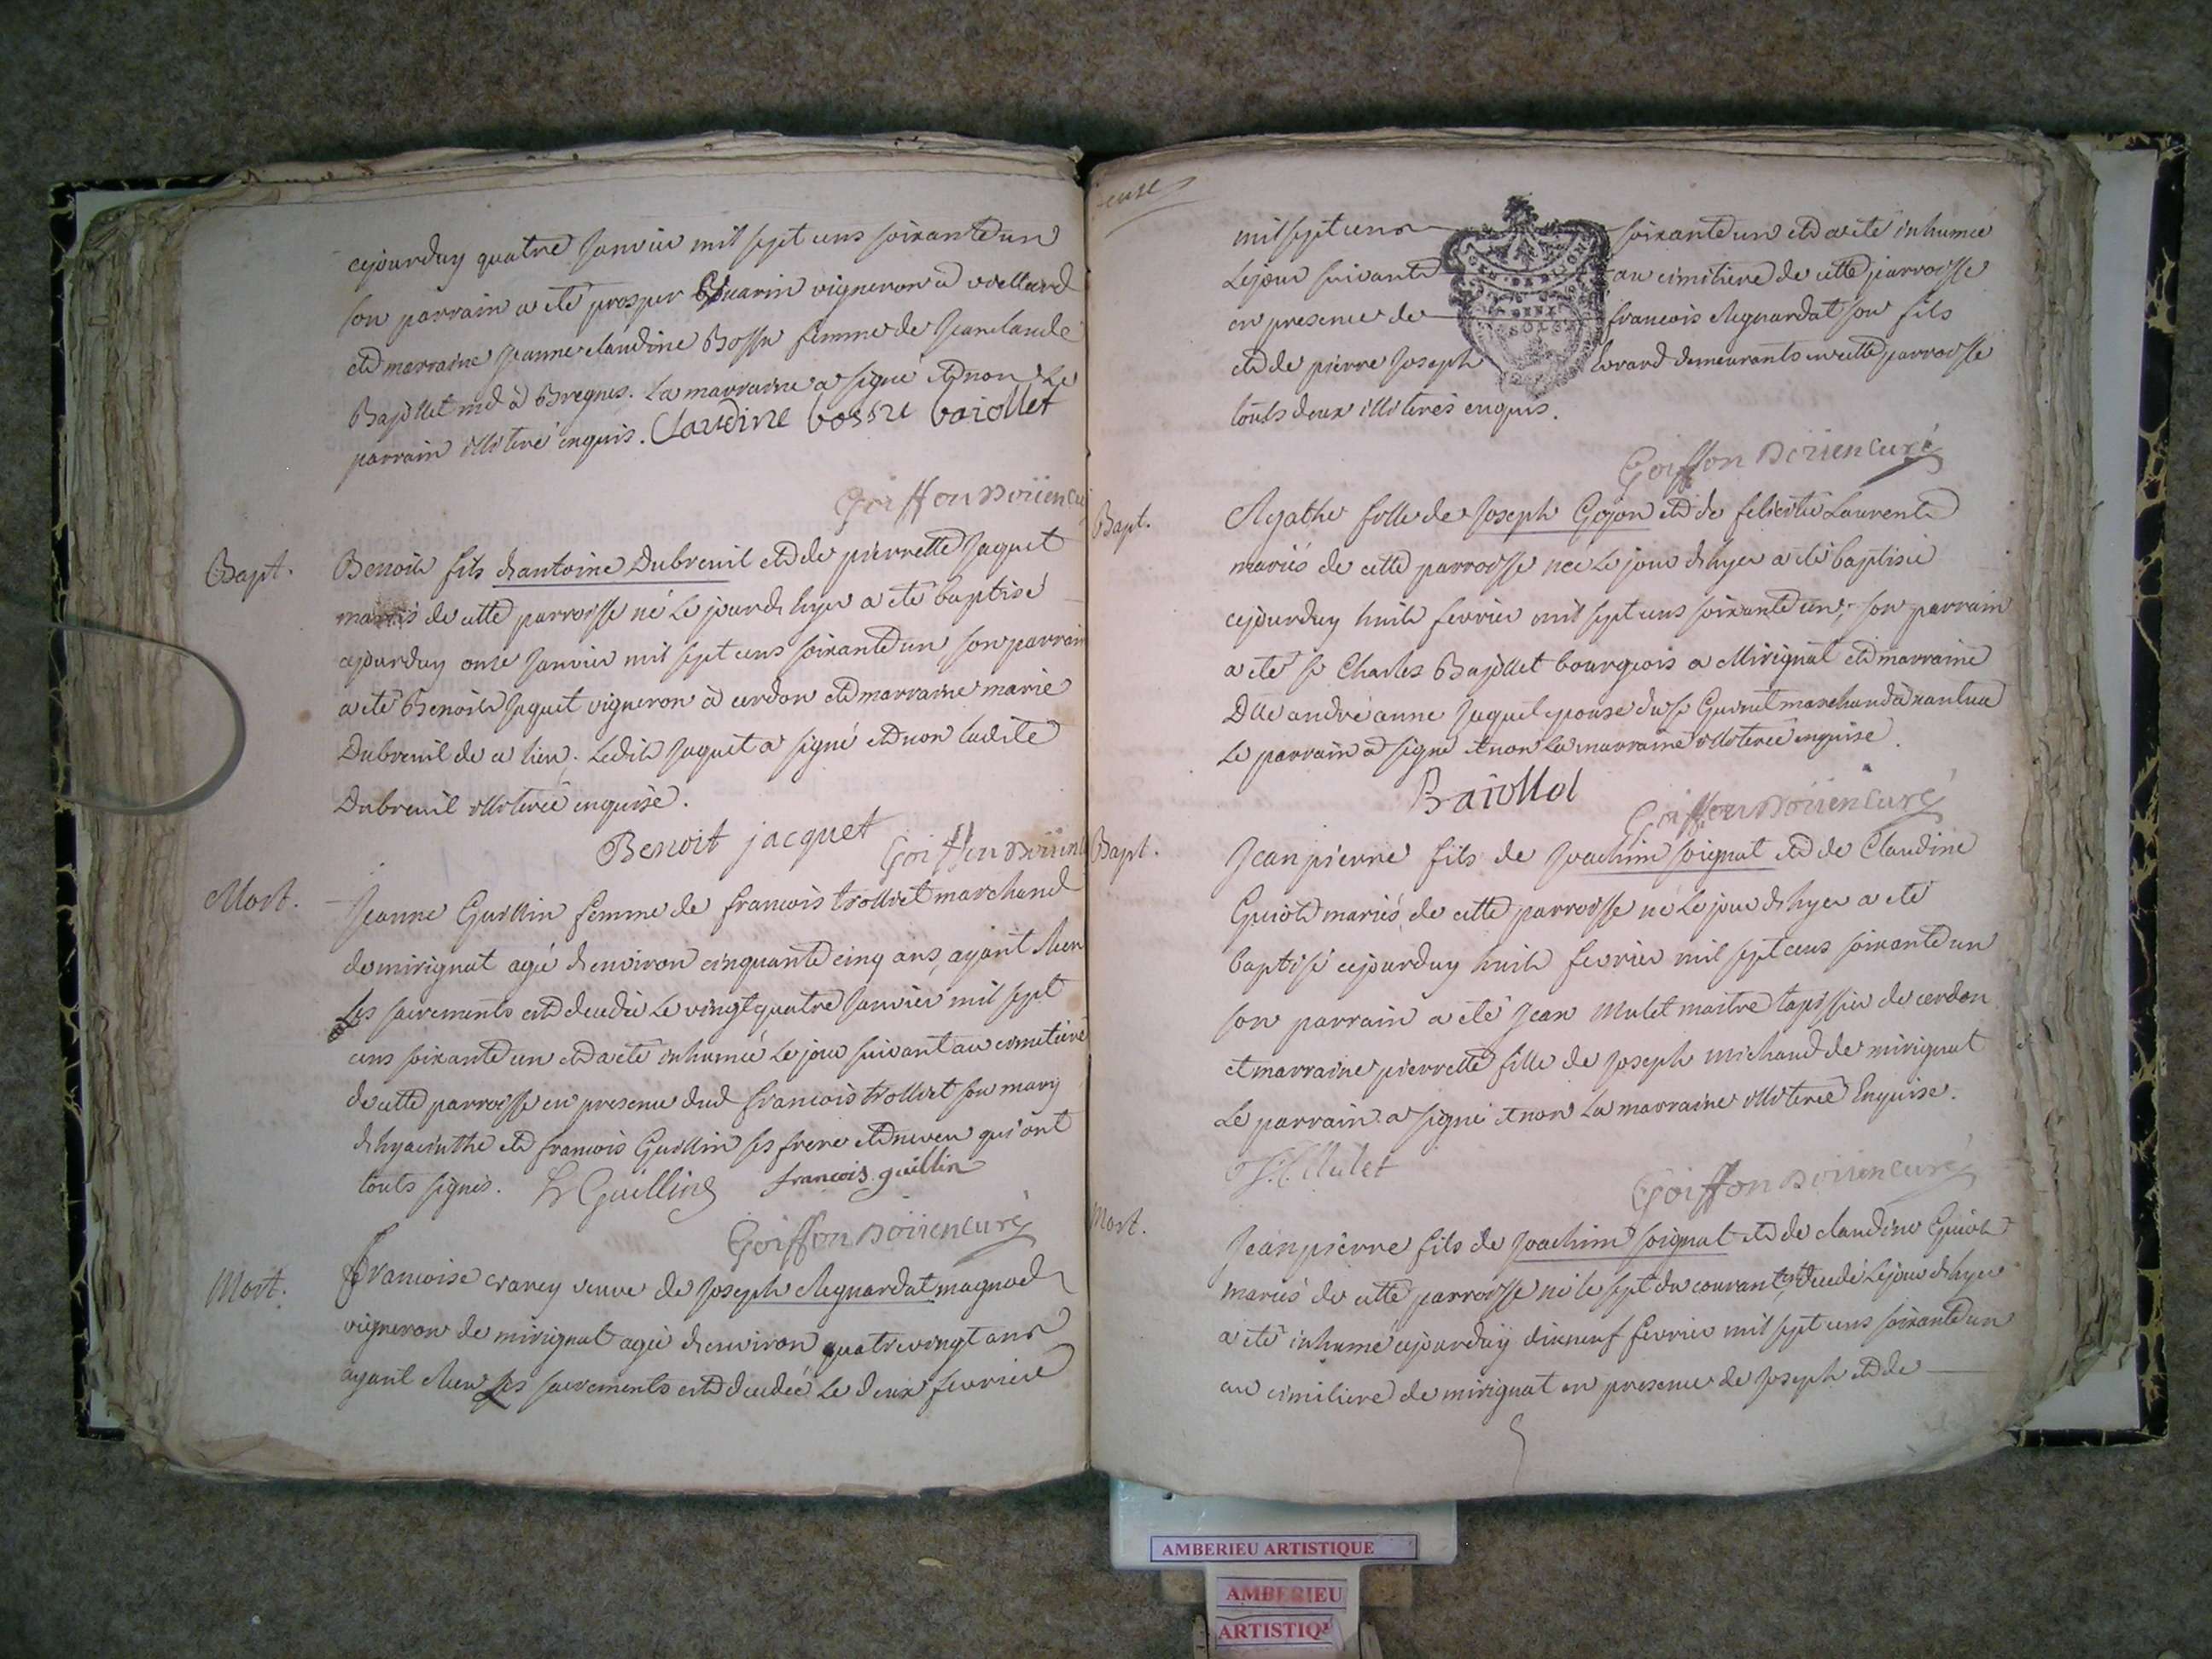 cejourduy quatre Janvier mil sept cens soixante un
son parrain a eté prosper Guarin vigneron a
et marraine Jeanne claudine Bossu femme de Jeanclaude
Bajollet md à Bregnes. La marraine a signé et non le
parrain illiteré enquis. Claudine bossu baiollet
Goiffon Doüen cu
Bapt.
Benoit fils d'antoine Dubreuil et de pierrette Jaquet
mariés de cette parroisse né Le jour d'hyer a eté baptisé
cejourduy onze Janvier mil sept cens soixante un son parrain
a eté Benoit Jaquet vigneron à cerdon et marraine marie
Dubreuil de ce lieu. Ledit Jaquet a signé et non ladite
Dubreuil illiterée enquise.
Benoit jacquet Goiffon Doüen
Mort.
Jeanne Guillin femme de francois trolliet marchand
de mirignat agée d'environ cinquante cinq ans, ayant Recu
Les sacrements est decedée Le vingt quatre Janvier mil sept
cens soixante un et a eté inhumée Le jour suivant au cimetiere
de cette parroisse en presence dud francois trolliet son mary
d'hyacinthe et francois Guillin ses frere et neveu qui ont
touts signés. h Guilling francois guillin
Goiffon Doüen curé
Mort.
francoise crarey veuve de Joseph Reguardat magnod
vigneron de mirignat agée d'environ quatre vingt ans
ayant Recu Les sacrements est decedée Le deux fevrier
mil sept cens soixante un et a eté inhumée
Le jour suivant au cimetiere de cette parroisse
en presence de francois Reguardat son fils
et de pierre Joseph Evrard demeurants en cette parroisse
touts deux illiterés enquis.
GEN DE LYON
DEUX
SOLS
Goiffon Doüen curé
Bapt.
Agathe fille de Joseph Gojon et de felicité Laurent
mariés de cette parroisse née Le jour d'hyer a eté baptisée
cejourduy huit fevrier mil sept cens soixante un, son parrain
a eté sr Charles Bajollet bourgeois a Mirignat et marraine
Dlle andré anne Jaquet epouse du sr Guinet marchand à nantua
Le parrain a signé et non La marraine illiterée enquise.
Baiollet
Goiffon Doüen curé
Bapt.
Jean pierre fils de Joachim soignat et de Claudine
Guiot mariés de cette parroisse né Le jour d'hyer a eté
baptisé cejourduy huit fevrier mil sept cens soixante un
son parrain a eté Jean Mulet maitre tapissier de cerdon
et marraine pierrette fille de Joseph michaud de mirignat
Le parrain a signé et non La marraine illiterée Enquise.
Mulet
Goiffon Doüen curé
Mort.
Jean pierre fils de Joachim soignat et de claudine Guiot
mariés de cette parroisse né le sept du courant et decedé Le jour d'hyer
a eté inhumé cejourduy dixneuf fevrier mil sept cens soixante un
au cimitiere de mirignat en presence de Joseph et de
AMBERIEU ARTISTIQUE
AMBERIEU
ARTISTIQU